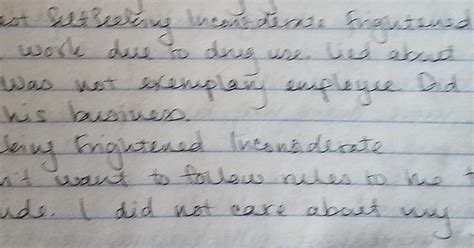 est Self Seeking Inconsiderate Frightened
work due to drug use. Lied about
Was not exemplary employee. Did
his business.
king Frightened Inconsiderate
n't want to follow rules to me
ude. I did not care about my